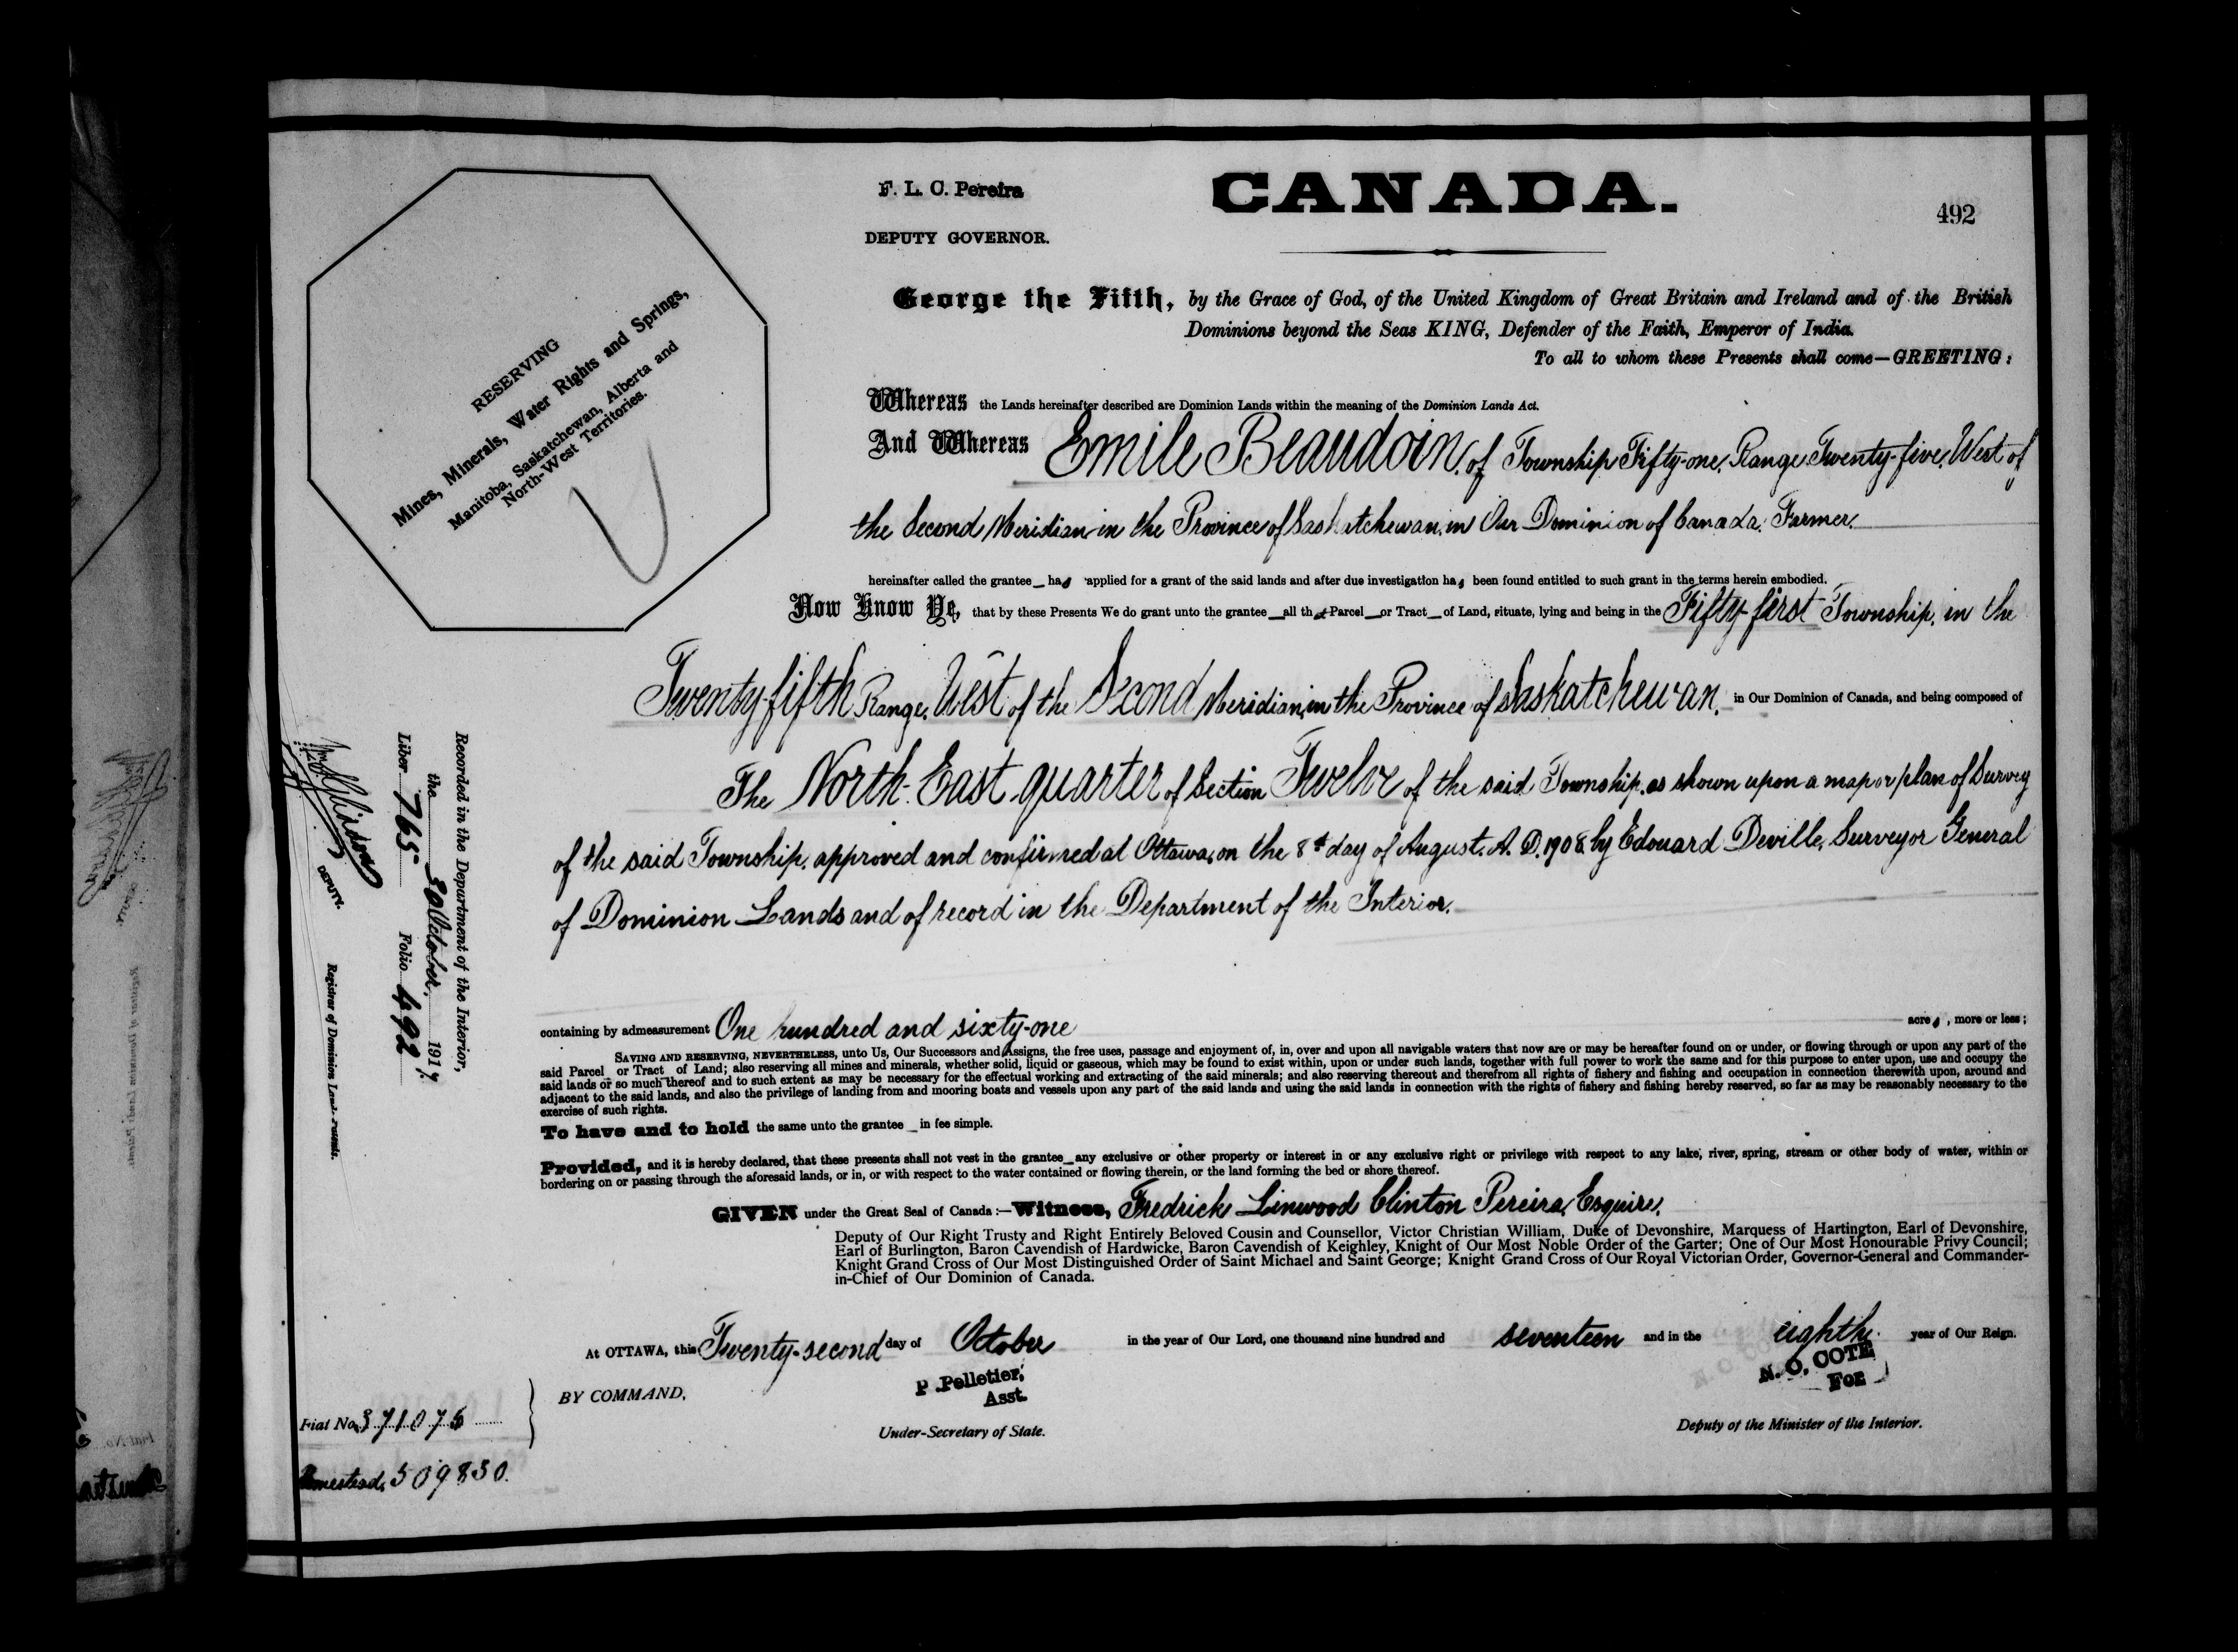 F. L. C. Pereira
DEPUTY GOVERNOR.
CANADA.
492
RESERVING
Mines, Minerals, Water Rights and Springs,
Manitoba, Saskatchewan, Alberta and
North-West Territories.
George the Fifth, by the Grace of God, of the United Kingdom of Great Britain and Ireland and of the British
Dominions beyond the Seas KING, Defender of the Faith, Emperor of India.
To all to whom these Presents shall come—GREETING:
Whereas the Lands hereinafter described are Dominion Lands within the meaning of the Dominion Lands Act.
And Whereas Emile Beaudoin, of Township Fifty-one, Range Twenty-five, West of
the Second Meridian in the Province of Saskatchewan, in Our Dominion of Canada, Farmer.
hereinafter called the grantee has applied for a grant of the said lands and after due investigation has been found entitled to such grant in the terms herein embodied.
Now Know Ye, that by these Presents We do grant unto the grantee all that Parcel or Tract of Land, situate, lying and being in the Fifty-first Township, in the
Twenty-fifth Range, West of the Second Meridian, in the Province of Saskatchewan, in Our Dominion of Canada, and being composed of
The North-East quarter of Section Twelve of the said Township, as shown upon a map or plan of Survey
of the said Township, approved and confirmed at Ottawa, on the 8th day of August, A. D. 1908, by Edouard Deville, Surveyor General
of Dominion Lands and of record in the Department of the Interior.
containing by admeasurement One hundred and sixty-one acres, more or less;
SAVING AND RESERVING, NEVERTHELESS, unto Us, Our Successors and Assigns, the free uses, passage and enjoyment of, in, over and upon all navigable waters that now are or may be hereafter found on or under, or flowing through or upon any part of the
said Parcel or Tract of Land; also reserving all mines and minerals, whether solid, liquid or gaseous, which may be found to exist within, upon or under such lands, together with full power to work the same and for this purpose to enter upon, use and occupy the
said lands or so much thereof and to such extent as may be necessary for the effectual working and extracting of the said minerals; and also reserving thereout and therefrom all rights of fishery and fishing and occupation in connection therewith upon, around and
adjacent to the said lands, and also the privilege of landing from and mooring boats and vessels upon any part of the said lands and using the said lands in connection with the rights of fishery and fishing hereby reserved, so far as may be reasonably necessary to the
exercise of such rights.
To have and to hold the same unto the grantee in fee simple.
Provided, and it is hereby declared, that these presents shall not vest in the grantee any exclusive or other property or interest in or any exclusive right or privilege with respect to any lake, river, spring, stream or other body of water, within or
bordering on or passing through the aforesaid lands, or in, or with respect to the water contained or flowing therein, or the land forming the bed or shore thereof.
GIVEN under the Great Seal of Canada:—Witness, Fredrick Linwood Clinton Pereira, Esquire,
Deputy of Our Right Trusty and Right Entirely Beloved Cousin and Counsellor, Victor Christian William, Duke of Devonshire, Marquess of Hartington, Earl of Devonshire,
Earl of Burlington, Baron Cavendish of Hardwicke, Baron Cavendish of Keighley, Knight of Our Most Noble Order of the Garter; One of Our Most Honourable Privy Council;
Knight Grand Cross of Our Most Distinguished Order of Saint Michael and Saint George; Knight Grand Cross of Our Royal Victorian Order, Governor-General and Commander-
in-Chief of Our Dominion of Canada.
At OTTAWA, this Twenty-second day of October in the year of Our Lord, one thousand nine hundred and seventeen and in the eighth year of Our Reign.
BY COMMAND,
P. Pelletier,
Asst.
Under-Secretary of State.
N. O. COTE
FOR
Deputy of the Minister of the Interior.
Recorded in the Department of the Interior,
the 30 October, 1917.
Liber 765 Folio 492
DEPUTY.
Registrar of Dominion Land Patents.
Fiat No. 371075
Homestead, 509830.